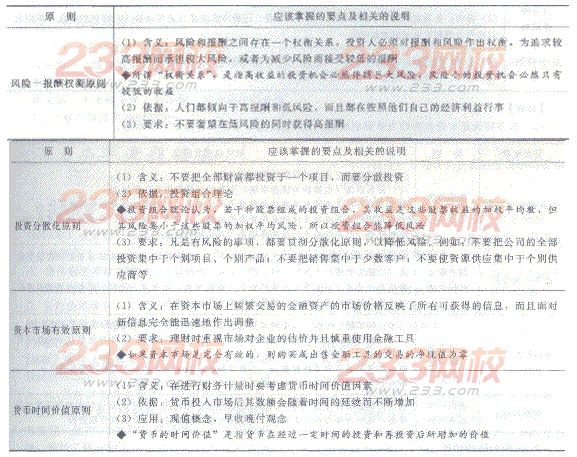 原 则 应该掌握的要点及相关的说明
(1) 含义：风险和报酬之间存在一个权衡关系，投资人必须对报酬和风险作出权衡，为追求较
高报酬而承担较大风险，或者为减少风险而接受较低的报酬
风险—报酬权衡原则
◆所谓“权衡关系”，是指高收益的投资机会必然伴随巨大风险，风险小的投资机会必然只有
较低的收益
(2) 依据：人们都倾向于高报酬和低风险，而且都在按照他们自己的经济利益行事
(3) 要求：不要奢望在低风险的同时获得高报酬
原 则 应该掌握的要点及相关的说明
(1) 含义：不要把全部财富都投资于一个项目，而要分散投资
(2) 依据：投资组合理论
◆投资组合理论认为，若干种股票组成的投资组合，其收益是这些股票收益的加权平均数，但
投资分散化原则
其风险要小于这些股票的加权平均风险，所以投资组合能降低风险
(3) 要求：凡是有风险的事项，都要贯彻分散化原则，以降低风险。例如：不要把公司的全部
投资集中于个别项目、个别产品；不要把销售集中于少数客户；不要使资源供应集中于个别供
应商等
(1) 含义：在资本市场上频繁交易的金融资产的市场价格反映了所有可获得的信息，而且面对
新信息完全能迅速地作出调整
资本市场有效原则
(2) 要求：理财时重视市场对企业的估价并且慎重使用金融工具
◆如果资本市场是完全有效的，则购买或出售金融工具的交易的净现值为零
(1) 含义：在进行财务计量时要考虑货币时间价值因素
(2) 依据：货币投入市场后其数额会随着时间的延续而不断增加
货币时间价值原则
(3) 应用：现值概念，早收晚付观念
◆“货币的时间价值”是指货币在经过一定时间的投资和再投资后所增加的价值
233网校
www.233.com
233网校
www.233.com
233网校
www.233.com